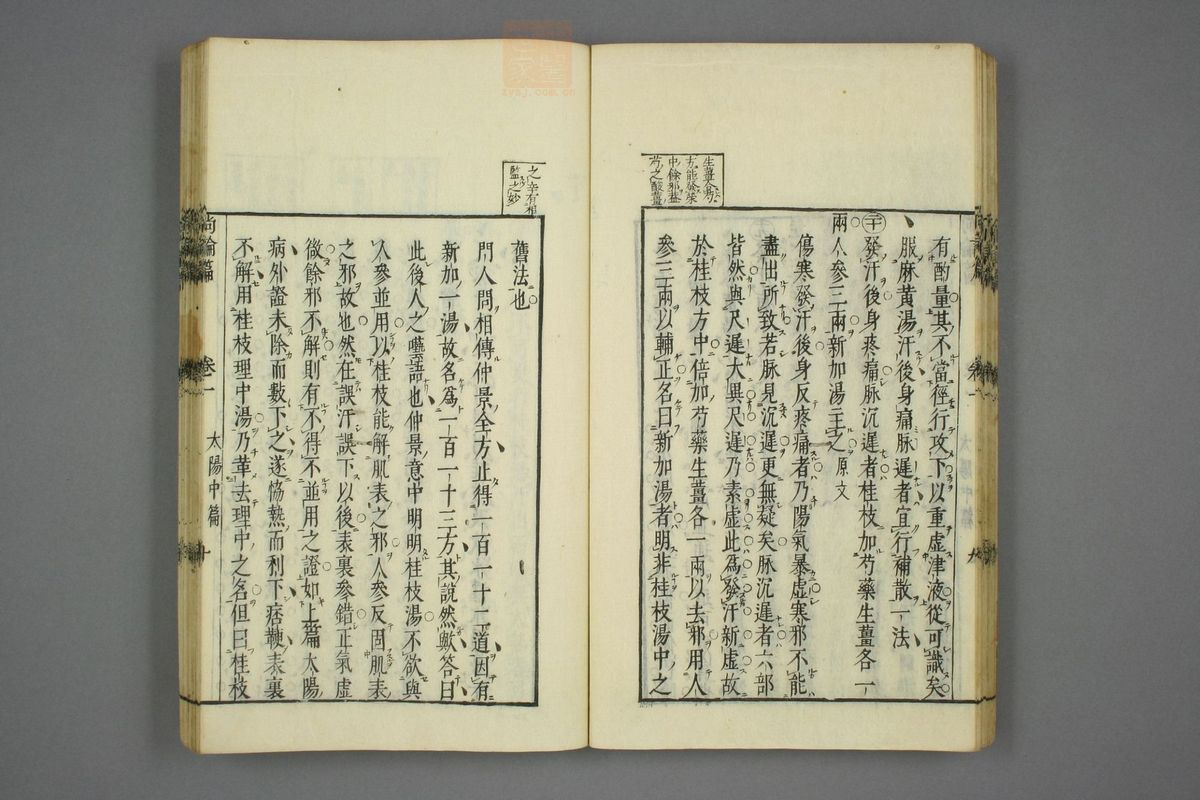 有酌量其不當徑行攻下以重虛津液從可識矣
服麻黃湯汗後身痛脉遲者宜行補散一法
發汗後身疼痛脉沉遲者桂枝加芍藥生薑各一
兩人參三兩新加湯主之 原文
傷寒發汗後身反疼痛者乃陽氣暴虛寒邪不能
盡出所致若脉見沉遲更無疑矣脉沉遲者六部
皆然與尺遲大異尺遲乃素虛此爲發汗新虛故
於桂枝方中倍加芍藥生薑各一兩以去邪用人
參三兩以輔正名曰新加湯者明非桂枝湯中之
尚論篇 卷一 太陽中篇 十
舊法也
門人問相傳仲景全方止得一百一十二道因有
新加一湯故名爲一百一十三方其說然歟答曰
此後人之囈語也仲景意中明明桂枝湯不欲與
人參並用以桂枝能解肌表之邪人參反固肌表
之邪故也然在誤汗誤下以後表裏參錯正氣虛
微餘邪不解則有不得不並用之證如上篇太陽
病外證未除而數下之遂恊熱而利下痞鞕表裏
不解用桂枝理中湯乃革去理中之名但曰桂枝
生薑
中餘邪
芍之酸